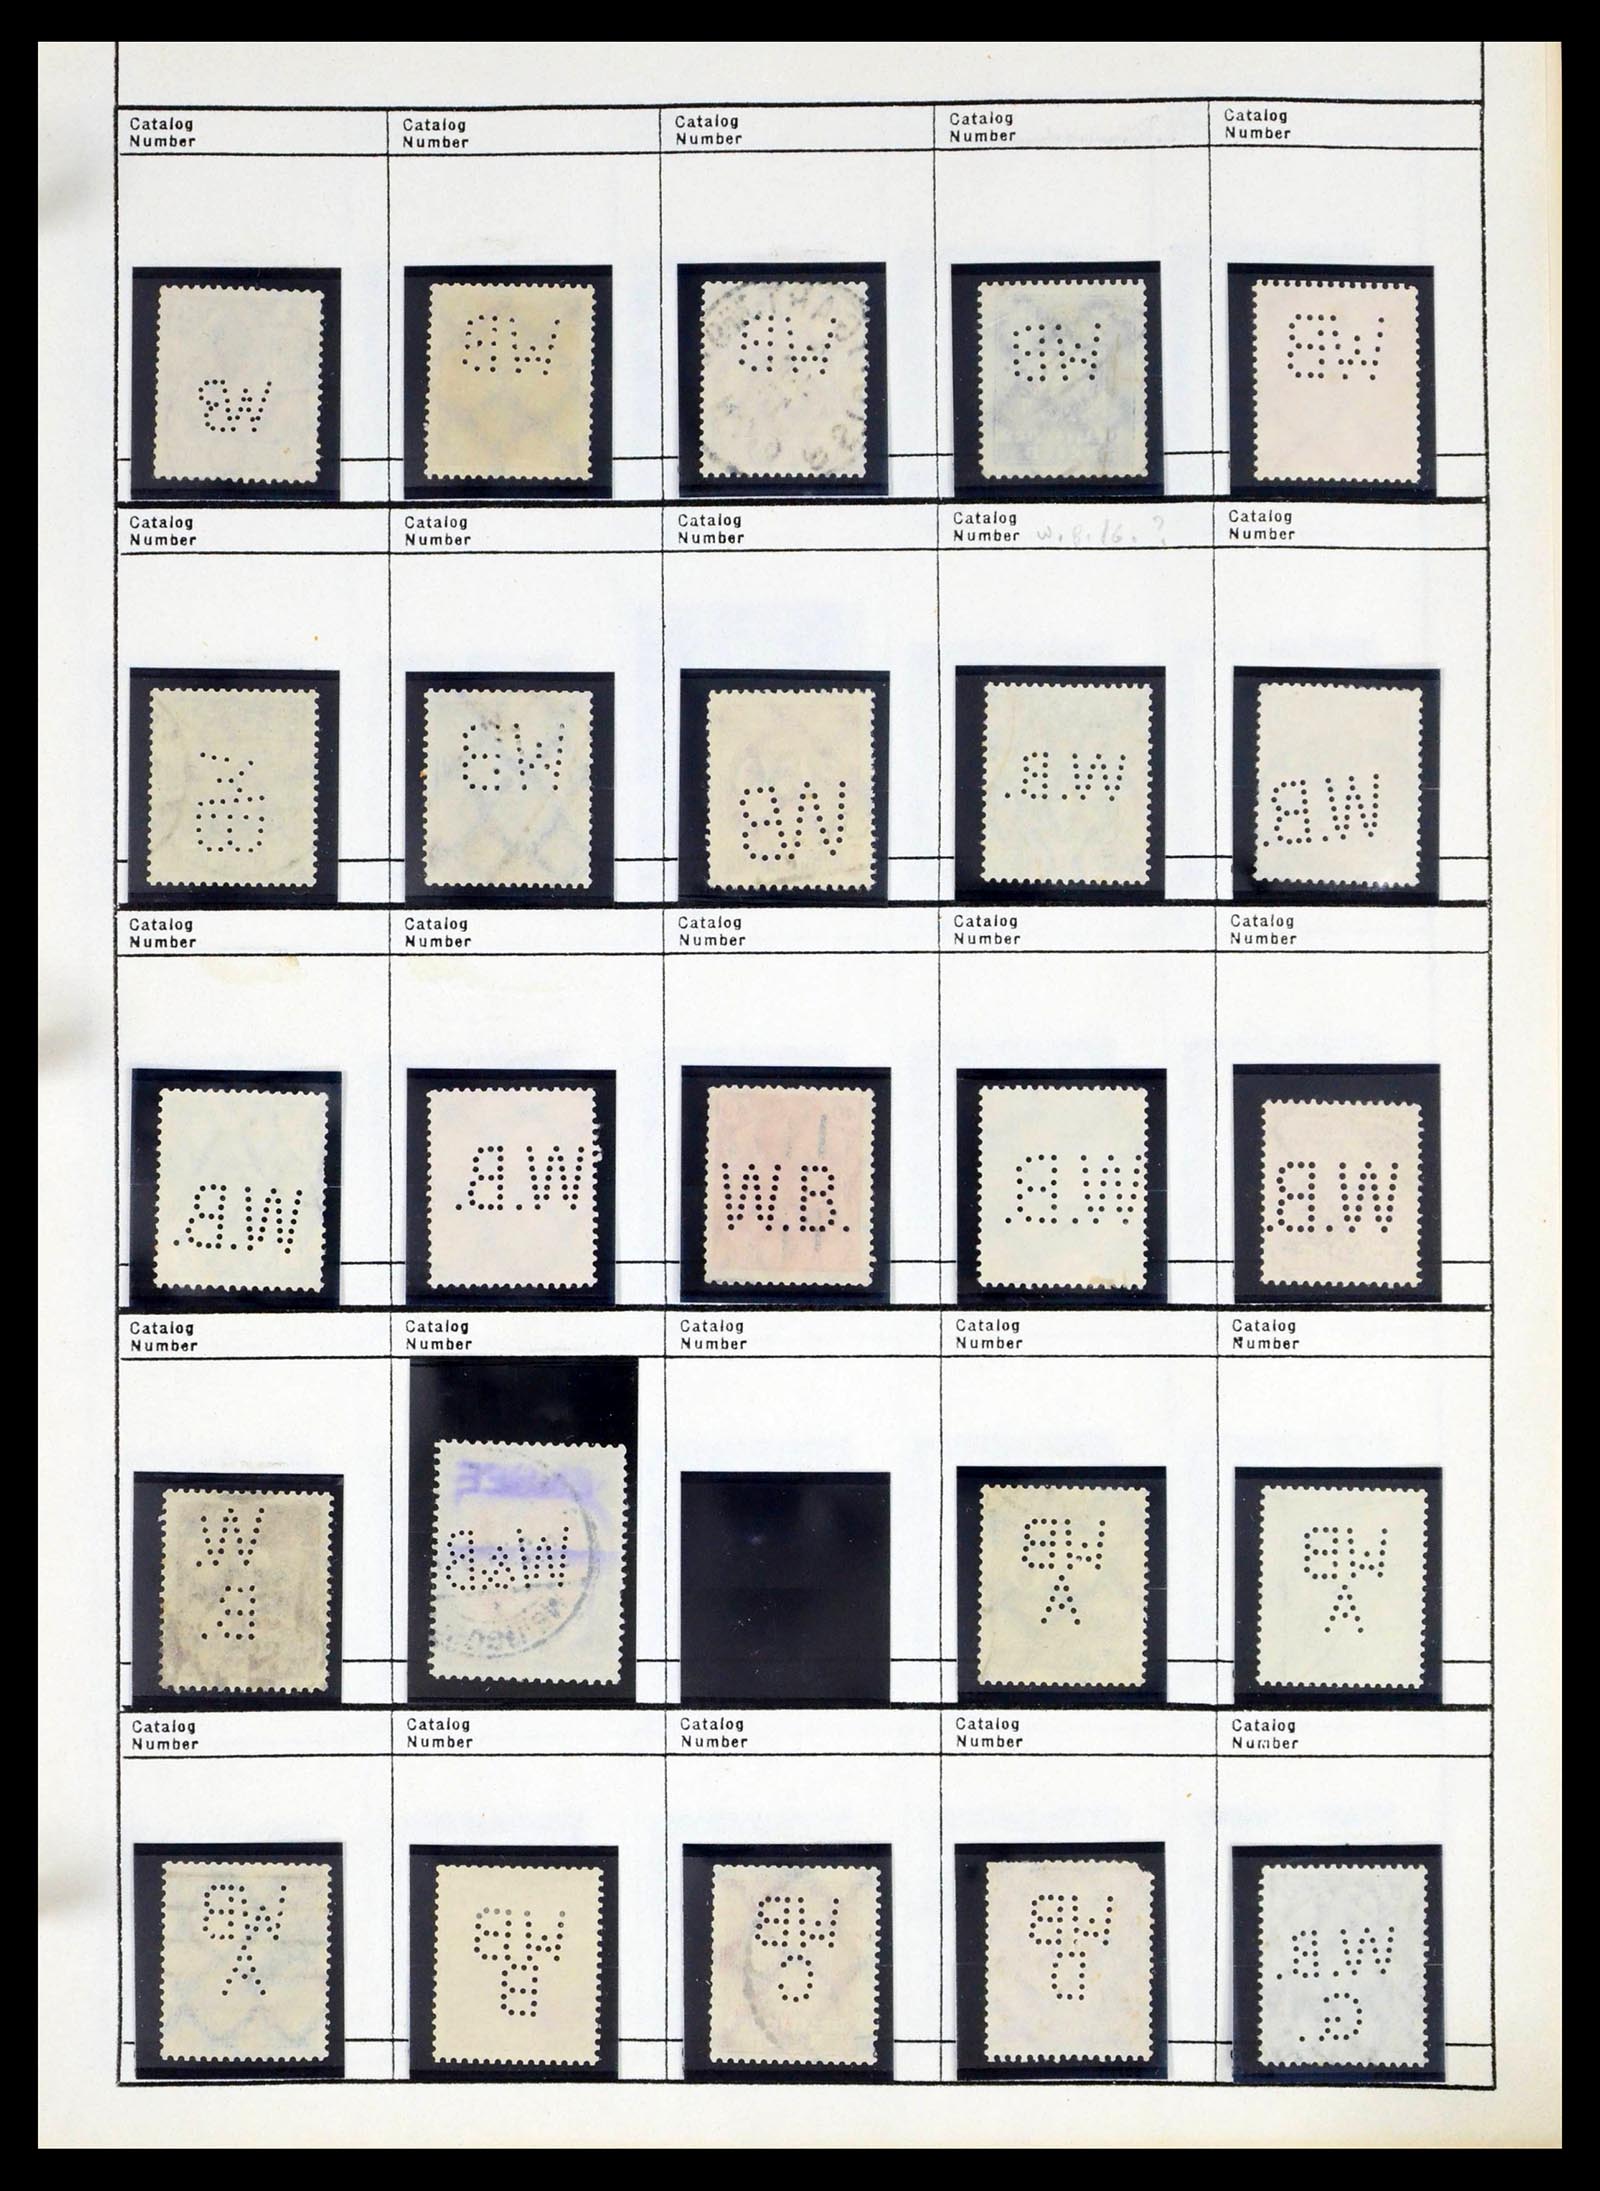 Catalog
Number
WB
Catalog
Number
WB
Catalog
Number
WB
Catalog
Number
WB
Catalog
Number
WB
Catalog
Number
WB
Catalog
Number
WB
Catalog
Number
WB
Catalog
Number W.B./G.?
W.B.
Catalog
Number
W.B.
Catalog
Number
W.B.
Catalog
Number
W.B.
Catalog
Number
W.B.
Catalog
Number
W.B.
Catalog
Number
W.B.
Catalog
Number
W.
B.
Catalog
Number
W&B
Catalog
Number
Catalog
Number
WB
A
Catalog
Number
WB
A
Catalog
Number
WB
A
Catalog
Number
WB
B
Catalog
Number
WB
O
Catalog
Number
WB
D
Catalog
Number
W.B.
G.